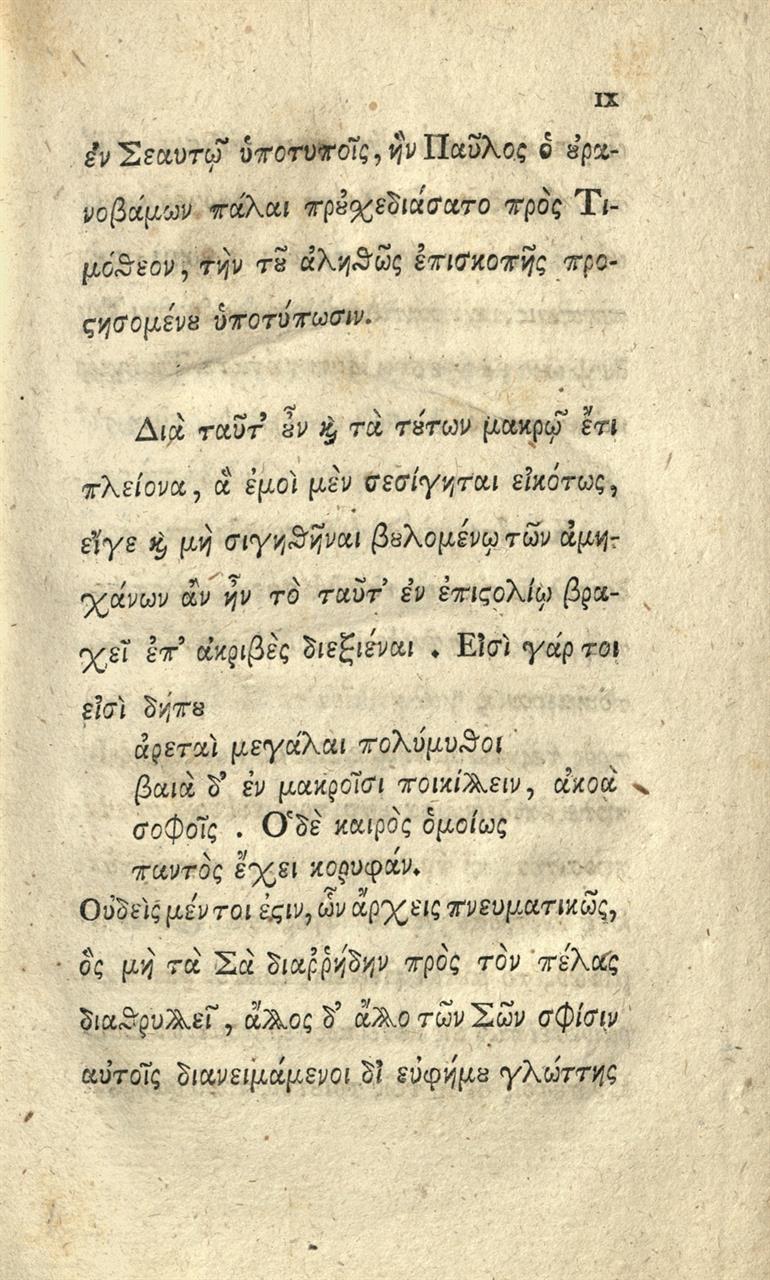 IX
ἐν Σεαυτῷ ὑποτυποῖς, ἣν Παῦλος ὁ ȣ̓ρα-
νοβάμων πάλαι πρȣ̓χεδιάσατο πρὸς Τι-
μόθεον, τὴν τȣ͂ ἀληθῶς ἐπισκοπῆς προ-
ϛησομένȣ ὑποτύπωσιν.
Διὰ ταῦτ' ȣ̓͂ν ϗ τὰ τȣ́των μακρῷ ἔτι
πλείονα, ἃ ἐμοὶ μὲν σεσίγηται εἰκότως,
εἴγε ϗ μὴ σιγηθῆναι βȣλομένῳ τῶν ἀμη-
χάνων ἂν ἦν τὸ ταῦτ' ἐν ἐπιϛολίῳ βρα-
χεῖ ἐπ' ἀκριβὲς διεξιέναι . Εἰσὶ γάρ τοι
εἰσὶ δήπȣ
ἀρεταὶ μεγάλαι πολύμυθοι
βαιὰ δ' ἐν μακροῖσι ποικίλλειν, ἀκοὰ
σοφοῖς . Ὁδὲ καιρὸς ὁμοίως
παντὸς ἔχει κορυφάν.
Οὐδεὶς μέν τοι ἐϛιν, ὧν ἄρχεις πνευματικῶς,
ὃς μὴ τὰ Σὰ διαῤῥήδην πρὸς τὸν πέλας
διαθρυλλεῖ, ἄλλος δ' ἄλλο τῶν Σῶν σφίσιν
αὐτοῖς διανειμάμενοι δι εὐφήμȣ γλώττης